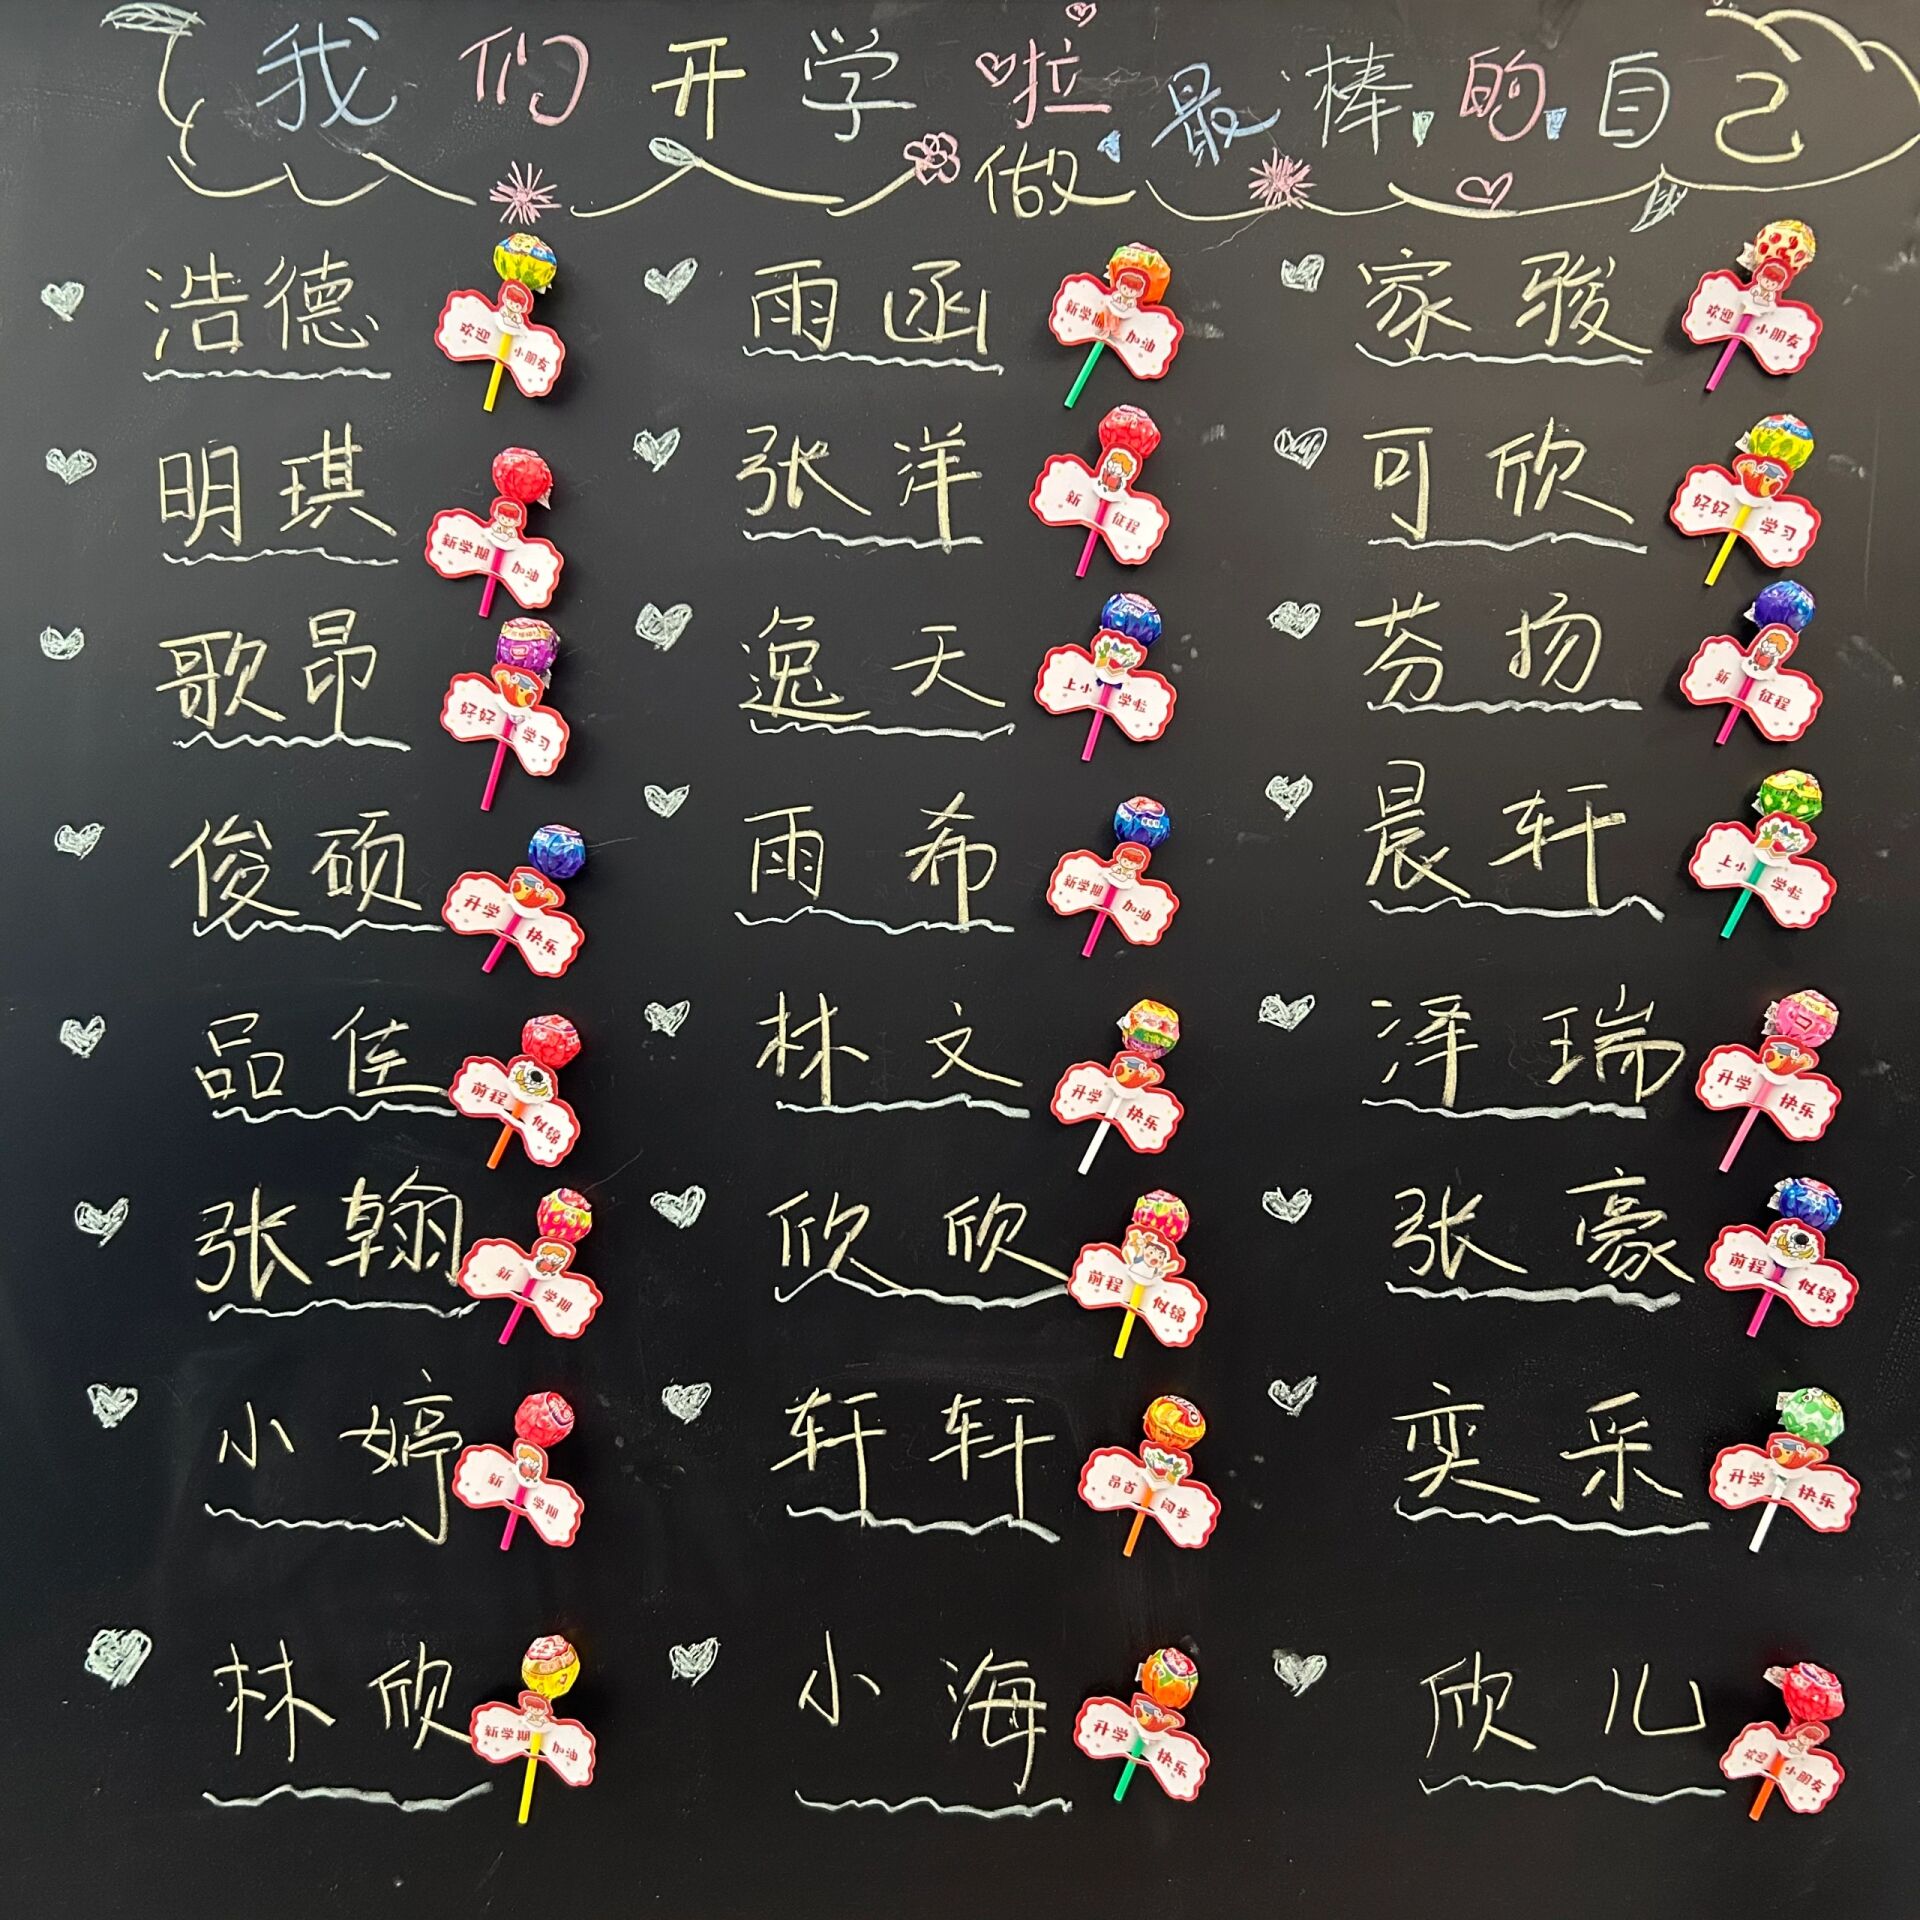 我们开学啦
做最棒的自己
浩德 欢迎 小朋友 雨函 新学期 加油 家骏 欢迎 小朋友
明琪 新学期 加油 张洋 新 征程 可欣 好好 学习
歌昂 好好 学习 逸天 上小 学啦 芬扬 新 征程
俊硕 升学 快乐 雨希 新学期 加油 晨轩 上小 学啦
品佳 前程 似锦 林文 升学 快乐 泽瑞 升学 快乐
张翰 新 学期 欣欣 前程 似锦 张豪 前程 似锦
小婷 新 学期 轩轩 昂首 阔步 奕采 升学 快乐
林欣 新学期 加油 小海 升学 快乐 欣儿 欢迎 小朋友